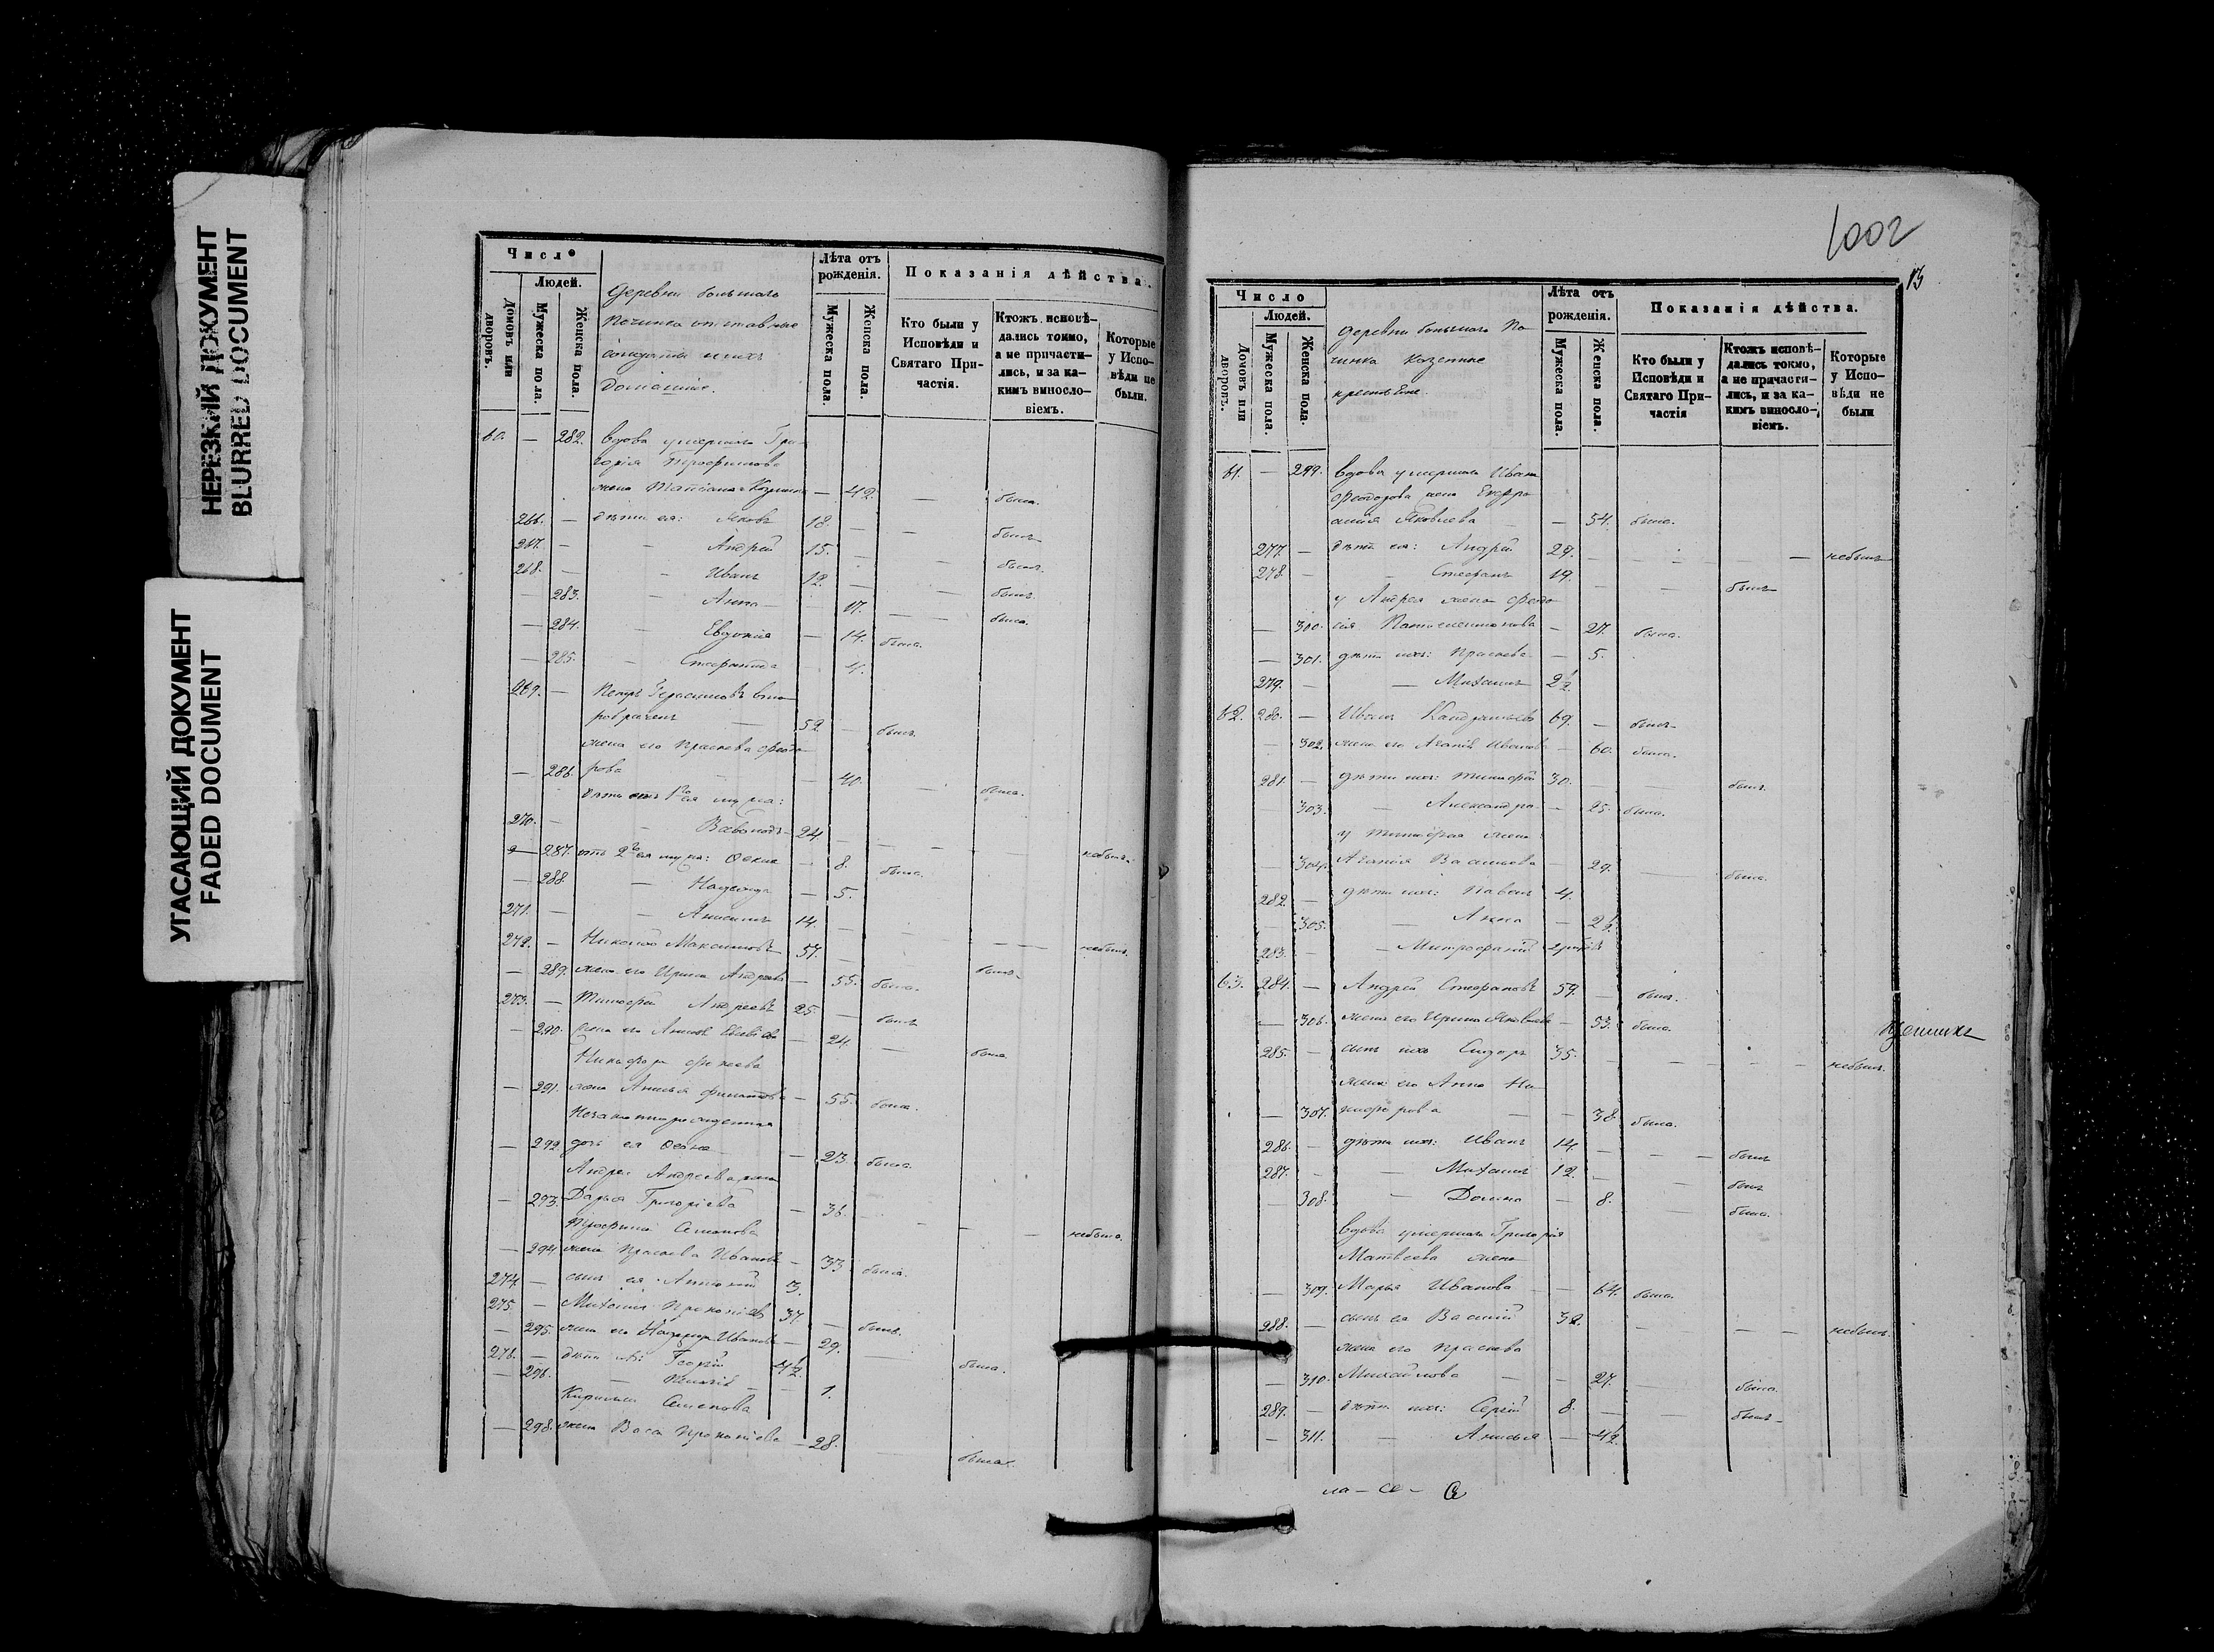 НЕРЕЗКИЙ ДОКУМЕНТ
BLURRED DOCUMENT
УГАСАЮЩИЙ ДОКУМЕНТ
FADED DOCUMENT
Число
Людей.
Домовъ или дворовъ.
Мужеска пола.
Женска пола.
Деревни большаго
Починка отставные
солдаты и ихъ
домашніе.
Лѣта отъ рожденія.
Мужеска пола.
Женска пола.
Показанія дѣйства.
Кто были у Исповѣди и Святаго Причастія.
Ктожъ исповѣдались токмо, а не причастились, и за какимъ винословіемъ.
Которые у Исповѣди не были.
60. — 282. вдова умершаго Гри-
горія Трофимова
жена Татіана Козмина — 42. — была.
266. — дѣти ея: Яковъ 18. — — былъ
267. — — Андрей 15. — — былъ.
268. — — Иванъ 12. — — былъ
— 283. — Анна — 17. — была.
— 284. — Евдокія — 14. была.
— 285. — Стефанида 4.
269. — Петръ Герасимовъ вто-
робраченъ — 52 — былъ.
жена его Праскева Феодо-
— 286. рова — 40. — была.
дѣти отъ 1го ея мужа:
270. — 24. — небылъ.
— 287. отъ 2го ея мужа: — 8. была.
— 288. — Надежда — 5.
271. — — Анисимъ 14. — — небылъ.
272. — Николай Максимовъ 57. — былъ.
— 289. жена его Ирина Андреева — 55. была.
273. — Тимофей Андреевъ 25. — былъ
— 290. жена его — 24. — была
Никифора
— 291. жена Анисья Филипова — 55. была.
Незаконнорожденная
— 292. дочь ея — 23. была.
Андрея Андреева жена
— 293. Дарья Григорьева — 36. — — — небыла.
Трофима Семенова
— 294. жена Праскева Иванова — 33 была.
274. — сынъ ея Антоній 3.
275. — Михаилъ Прокопіевъ 37. — былъ.
— 295. жена его Надежда Иванова — 29. — была.
276. — дѣти ихъ: Георгій 4½.
— 296. — — 1.
Кирилы Семенова
— 298. жена Васса Прокопіева — 28. была.
1002
13
Число
Людей.
Домовъ или дворовъ.
Мужеска пола.
Женска пола.
Деревни большаго По-
чинка казенные
крестьяне.
Лѣта отъ рожденія.
Мужеска пола.
Женска пола.
Показанія дѣйства.
Кто были у Исповѣди и Святаго Причастія
Ктожъ исповѣдались токмо, а не причастились, и за какимъ винословіемъ.
Которые у Исповѣди не были
61. — 299. вдова умершаго Ивана
Феодорова жена Евфро-
синія Яковлева — 54. была.
277. — дѣти ея: Андрей 29. — — — небылъ
278. — — Стефанъ 19. — — былъ
у Андрея жена Феодо-
— 300. сія — 27. была.
— 301. дѣти ихъ: Праскева — 5.
279. — — Михаилъ 2½.
62. 280. — Иванъ 69. — былъ
— 302. жена его Агапія Иванова — 60. была.
281. — дѣти ихъ: Тимофей 30. — былъ.
303. — Александра — 25. была.
у Тимофея жена:
— 304. Агапія Васильева — 29. — была.
282. — дѣти ихъ: Павелъ 4.
— 305. — Анна — 2½.
283. — — Митрофаній
63. 284. — Андрей Стефановъ 59. — былъ.
— 306. жена его Ирина Яковлева — 53. была.
285. — сынъ ихъ Сидоръ 35. — — — небылъ.
жена его Анна Ни-
— 307. кифорова — — 38 была.
286. — дѣти ихъ: Иванъ 14. — — былъ
287. — — Михаилъ 12. — былъ
308. — Домна — 8. — была.
вдова умершаго Григорія
Матвеева жена
— 309. Марья Иванова — — 64. была.
288. — сынъ ея Василій 32. — — — небылъ.
жена его Праскева
— 310. Михайлова — — 27. — была.
289. — дѣти ихъ: Сергій 8. — — былъ
— 311. — Анисья — 4½.